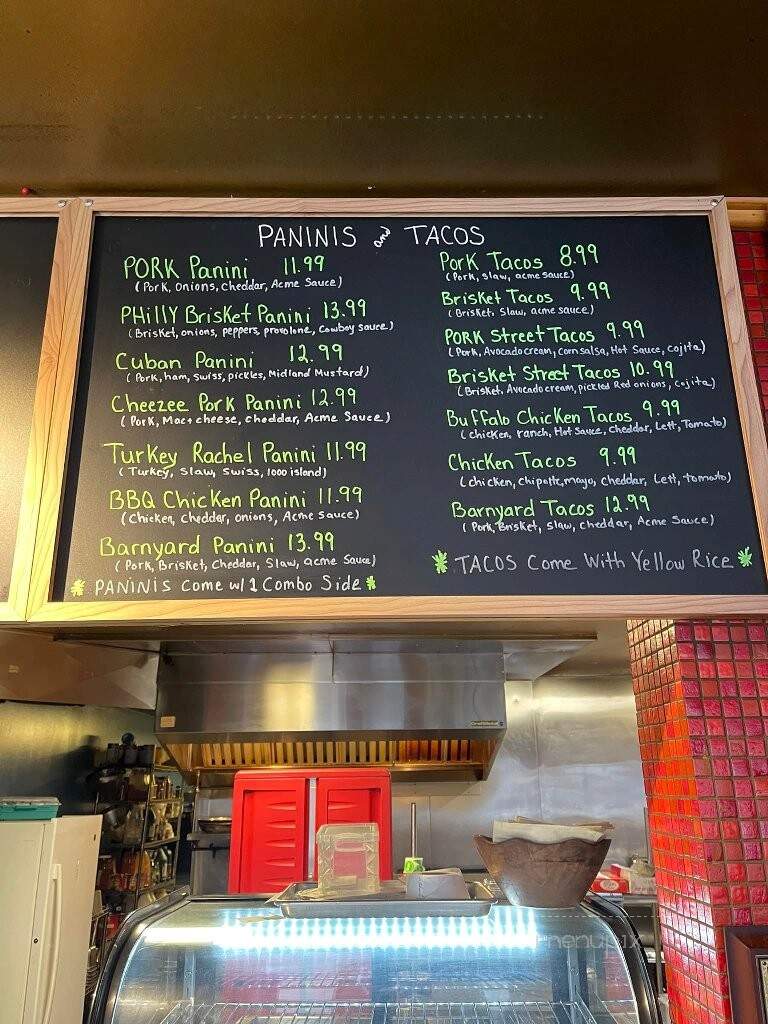 PANINIS and TACOS
PORK Panini 11.99
(Pork, Onions, Cheddar, Acme Sauce)
PHillY Brisket Panini 13.99
(Brisket, onions, peppers, provolone, Cowboy sauce)
Cuban Panini 12.99
(Pork, ham, swiss, pickles, Midland Mustard)
Cheezee Pork Panini 12.99
(Pork, Mac+cheese, cheddar, Acme Sauce)
Turkey Rachel Panini 11.99
(Turkey, Slaw, Swiss, 1000 island)
BBQ Chicken Panini 11.99
(Chicken, Cheddar, onions, Acme Sauce)
Barnyard Panini 13.99
(Pork, Brisket, Cheddar, Slaw, acme Sauce)
PANINIS Come w/1 Combo Side
Pork Tacos 8.99
(Pork, Slaw, acme sauce)
Brisket Tacos 9.99
(Brisket, Slaw, acme sauce)
PORK Street Tacos 9.99
(Pork, Avocado cream, corn salsa, Hot Sauce, cojita)
Brisket Street Tacos 10.99
(Brisket, Avocado cream, pickled Red onions, cojita)
Buffalo Chicken Tacos 9.99
(chicken, ranch, Hot Sauce, Cheddar, Lett, Tomato)
Chicken Tacos 9.99
(chicken, chipotle, mayo, Cheddar, Lett, tomato)
Barnyard Tacos 12.99
(Pork, Brisket, slaw, Cheddar, Acme Sauce)
TACOS Come With Yellow Rice
menupix